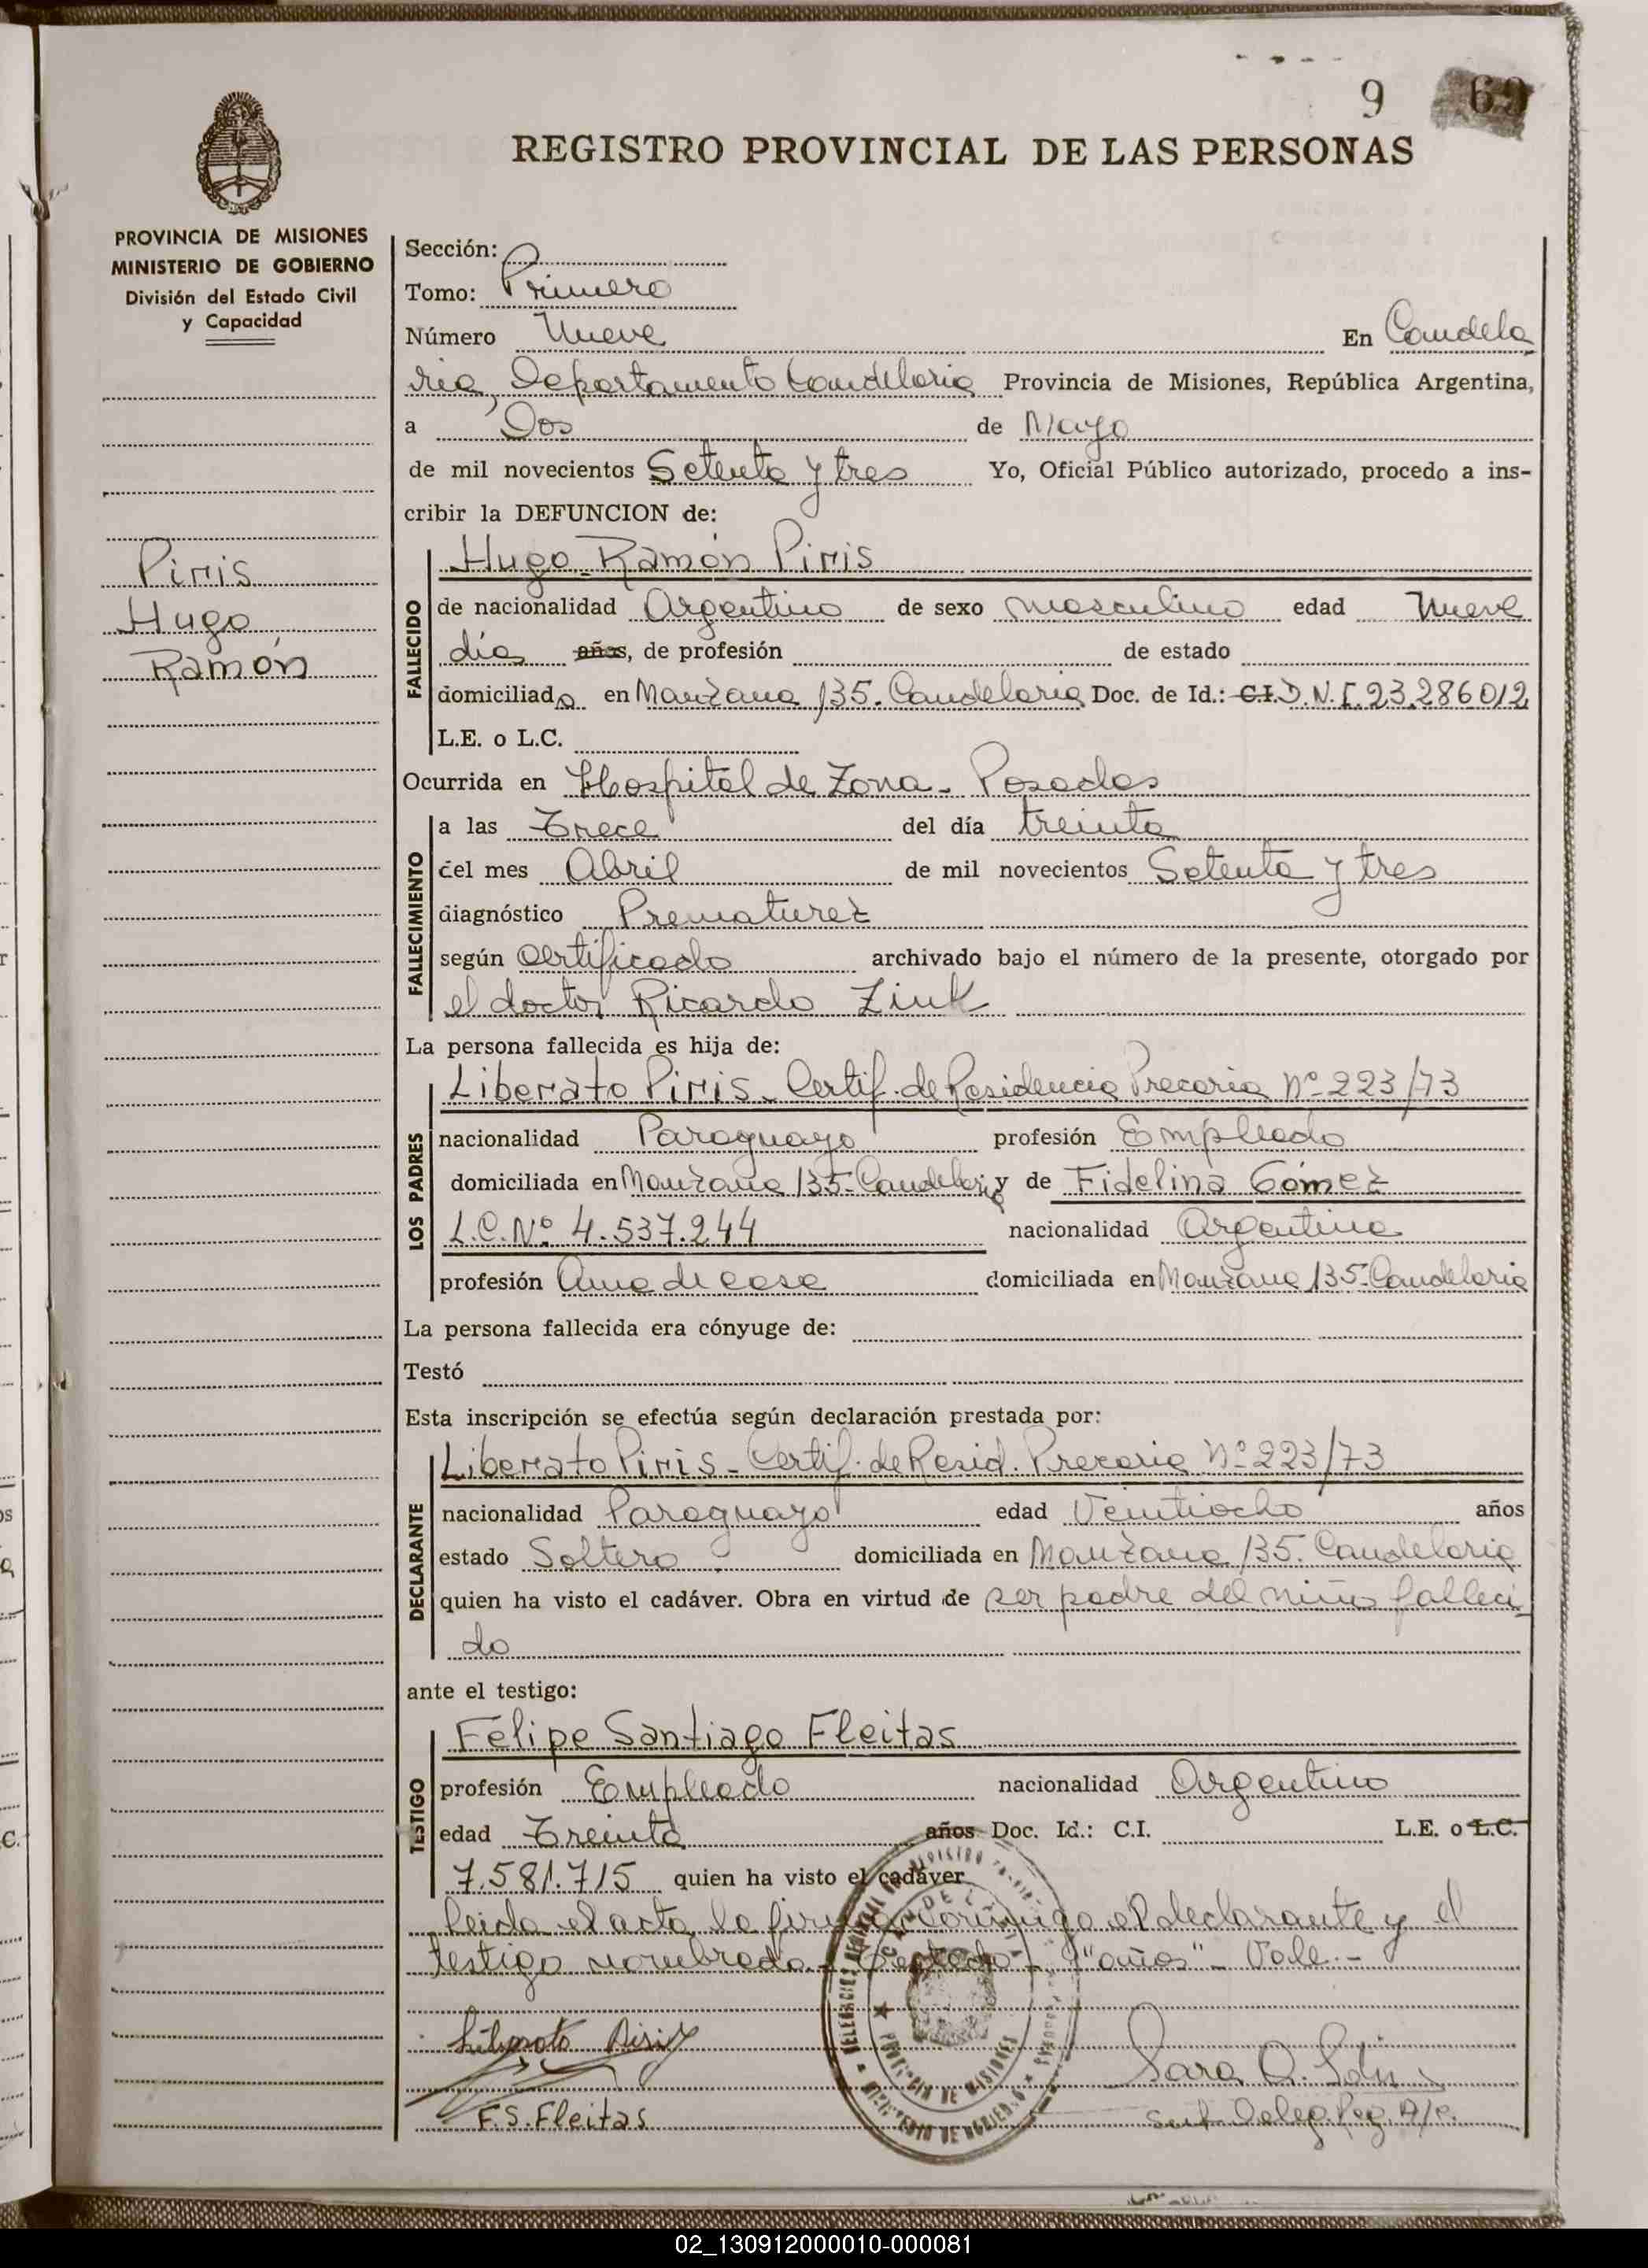 9 69
REGISTRO PROVINCIAL DE LAS PERSONAS
PROVINCIA DE MISIONES
MINISTERIO DE GOBIERNO
División del Estado Civil
y Capacidad
Piris
Hugo
Ramón
Sección:
Tomo: Primero
Número Nueve En Candela
ria, Departamento Candelaria Provincia de Misiones, República Argentina,
a Dos de Mayo
de mil novecientos Setenta y tres Yo, Oficial Público autorizado, procedo a ins-
cribir la DEFUNCION de:
FALLECIDO
Hugo Ramón Piris
de nacionalidad Argentino de sexo masculino edad Nueve
días años, de profesión de estado
domiciliado en Manzana 135. Candelaria Doc. de Id.: C.I. D.N.I. 23.286012
L.E. o L.C.
Ocurrida en Hospital de Zona - Posadas
FALLECIMIENTO
a las Trece del día treinta
del mes Abril de mil novecientos Setenta y tres
diagnóstico Prematurez
según certificado archivado bajo el número de la presente, otorgado por
el doctor Ricardo Zink
La persona fallecida es hija de:
LOS PADRES
Liberato Piris - Certif. de Residencia Precaria Nº 223/73
nacionalidad Paraguayo profesión Empleado
domiciliada en Manzana 135- Candelaria y de Fidelina Gómez
L.C. Nº 4.537.244 nacionalidad Argentina
profesión Ama de casa domiciliada en Manzana 135- Candelaria
La persona fallecida era cónyuge de:
Testó
Esta inscripción se efectúa según declaración prestada por:
DECLARANTE
Liberato Piris - Certif. de Resid. Precaria Nº 223/73
nacionalidad Paraguayo edad Veintiocho años
estado Soltero domiciliada en Manzana 135. Candelaria
quien ha visto el cadáver. Obra en virtud de ser padre del niño falleci
do
ante el testigo:
TESTIGO
Felipe Santiago Fleitas
profesión Empleado nacionalidad Argentino
edad Treinta años Doc. Id.: C.I. L.E. o L.C.
7.581.715 quien ha visto el cadáver
Leida el acta la firma conmigo el declarante y el
testigo nombrado. - Testado - "años" - Vale. -
Liberato Piris
F.S. Fleitas
Sara
Sub Deleg. Reg.
PROVINCIA DE MISIONES
MINISTERIO DE GOBIERNO
02_130912000010-000081